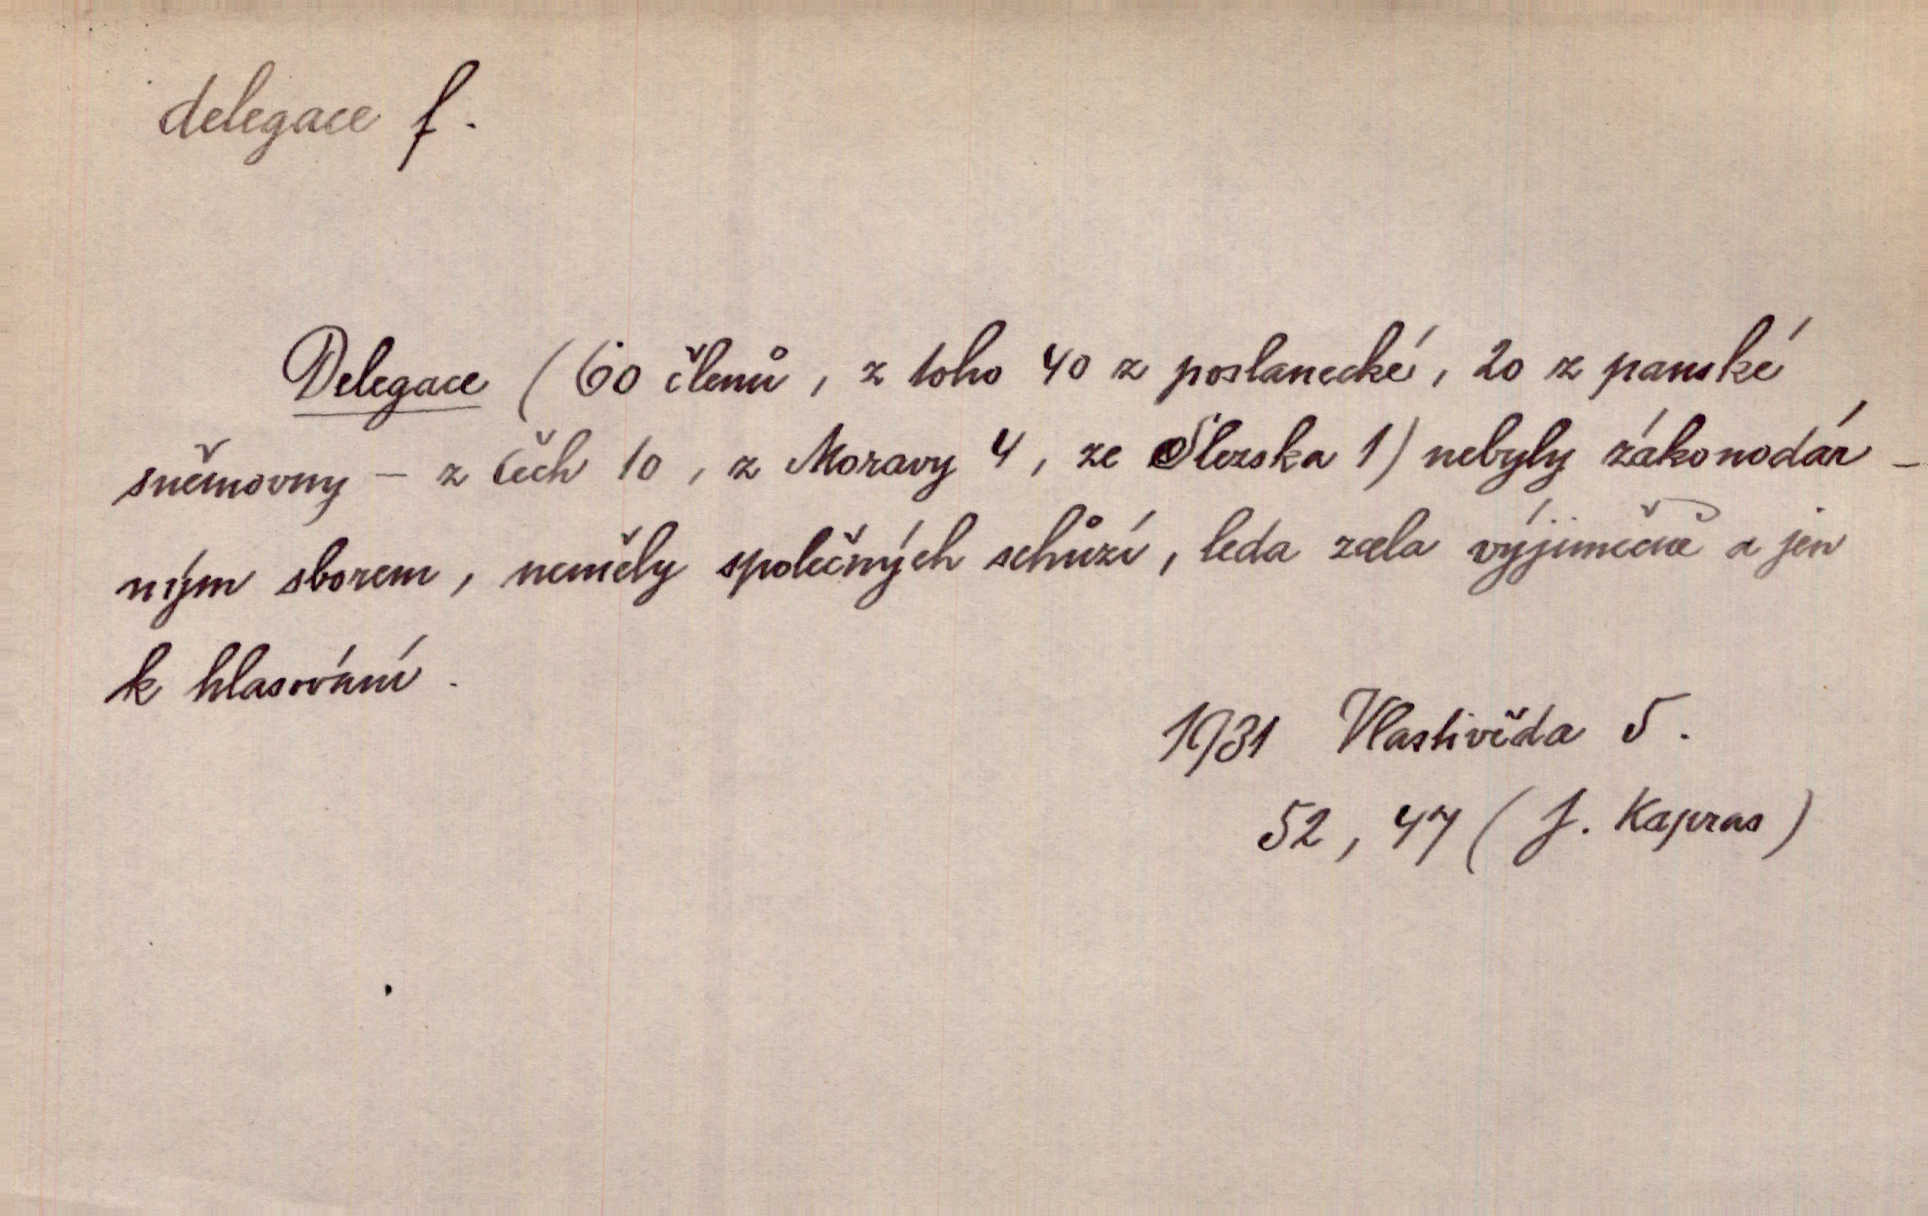 delegace f.
Delegace (60 členů, z toho 40 z poslanecké, 20 z panské
sněmovny – z Čech 10, z Moravy 4, ze Slezska 1) nebyly zákonodár-
ným sborem, neměly společných schůzí, leda zcela výjimečně a jen
k hlasování.
1931 Vlastivěda 5.
52, 47 (J. Kapras)